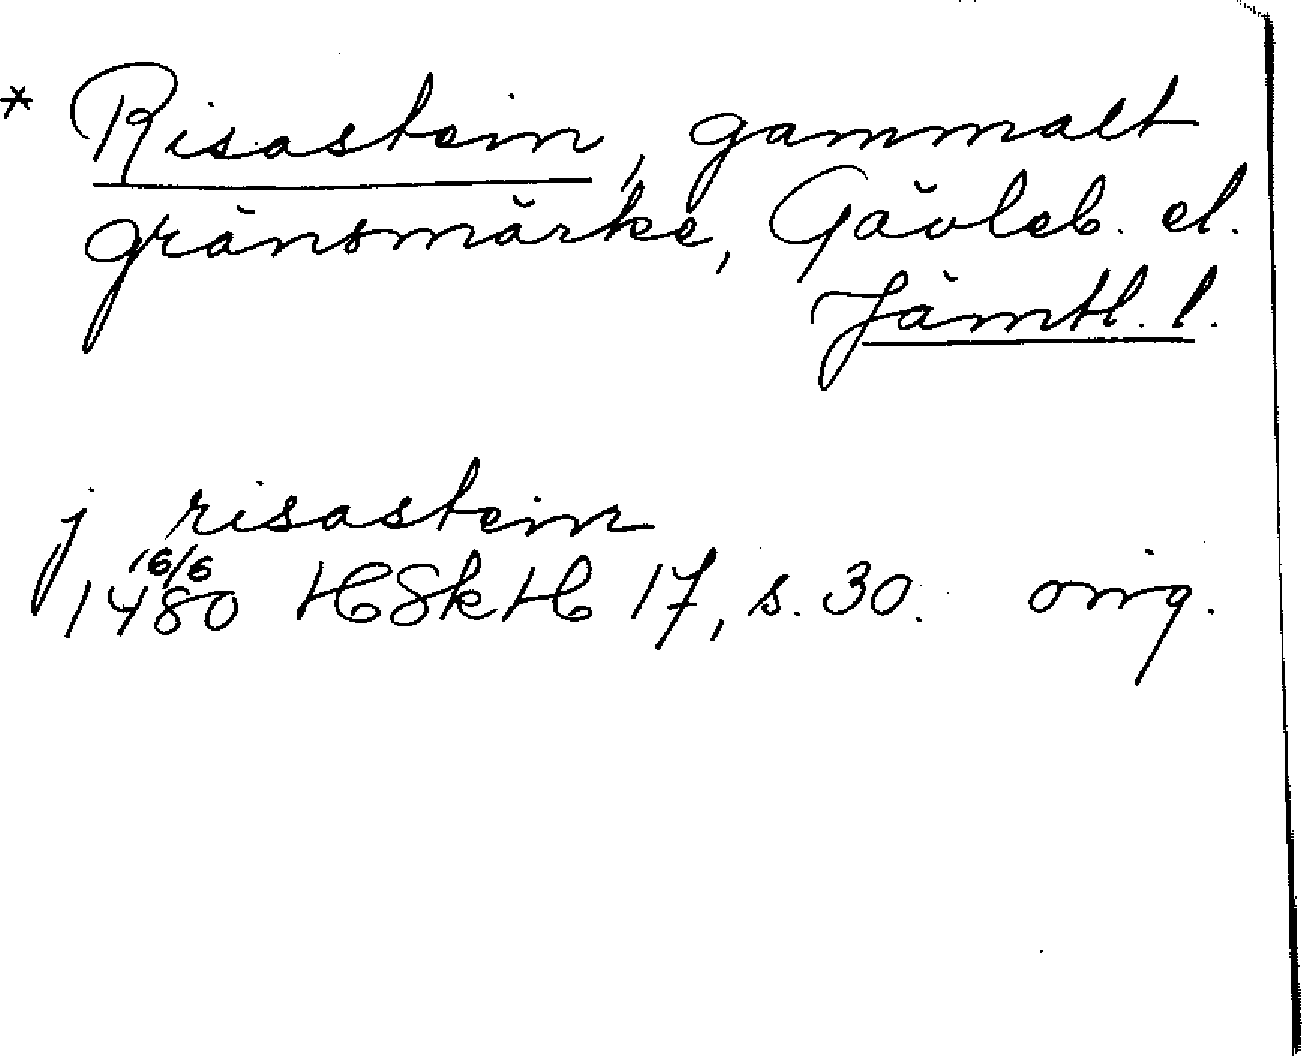 * Risastein, gammalt
gränsmärke, Gävleb. el.
Jämtl. l.
j risastein
16/6
1480 HSkH 17, s. 30. orig.